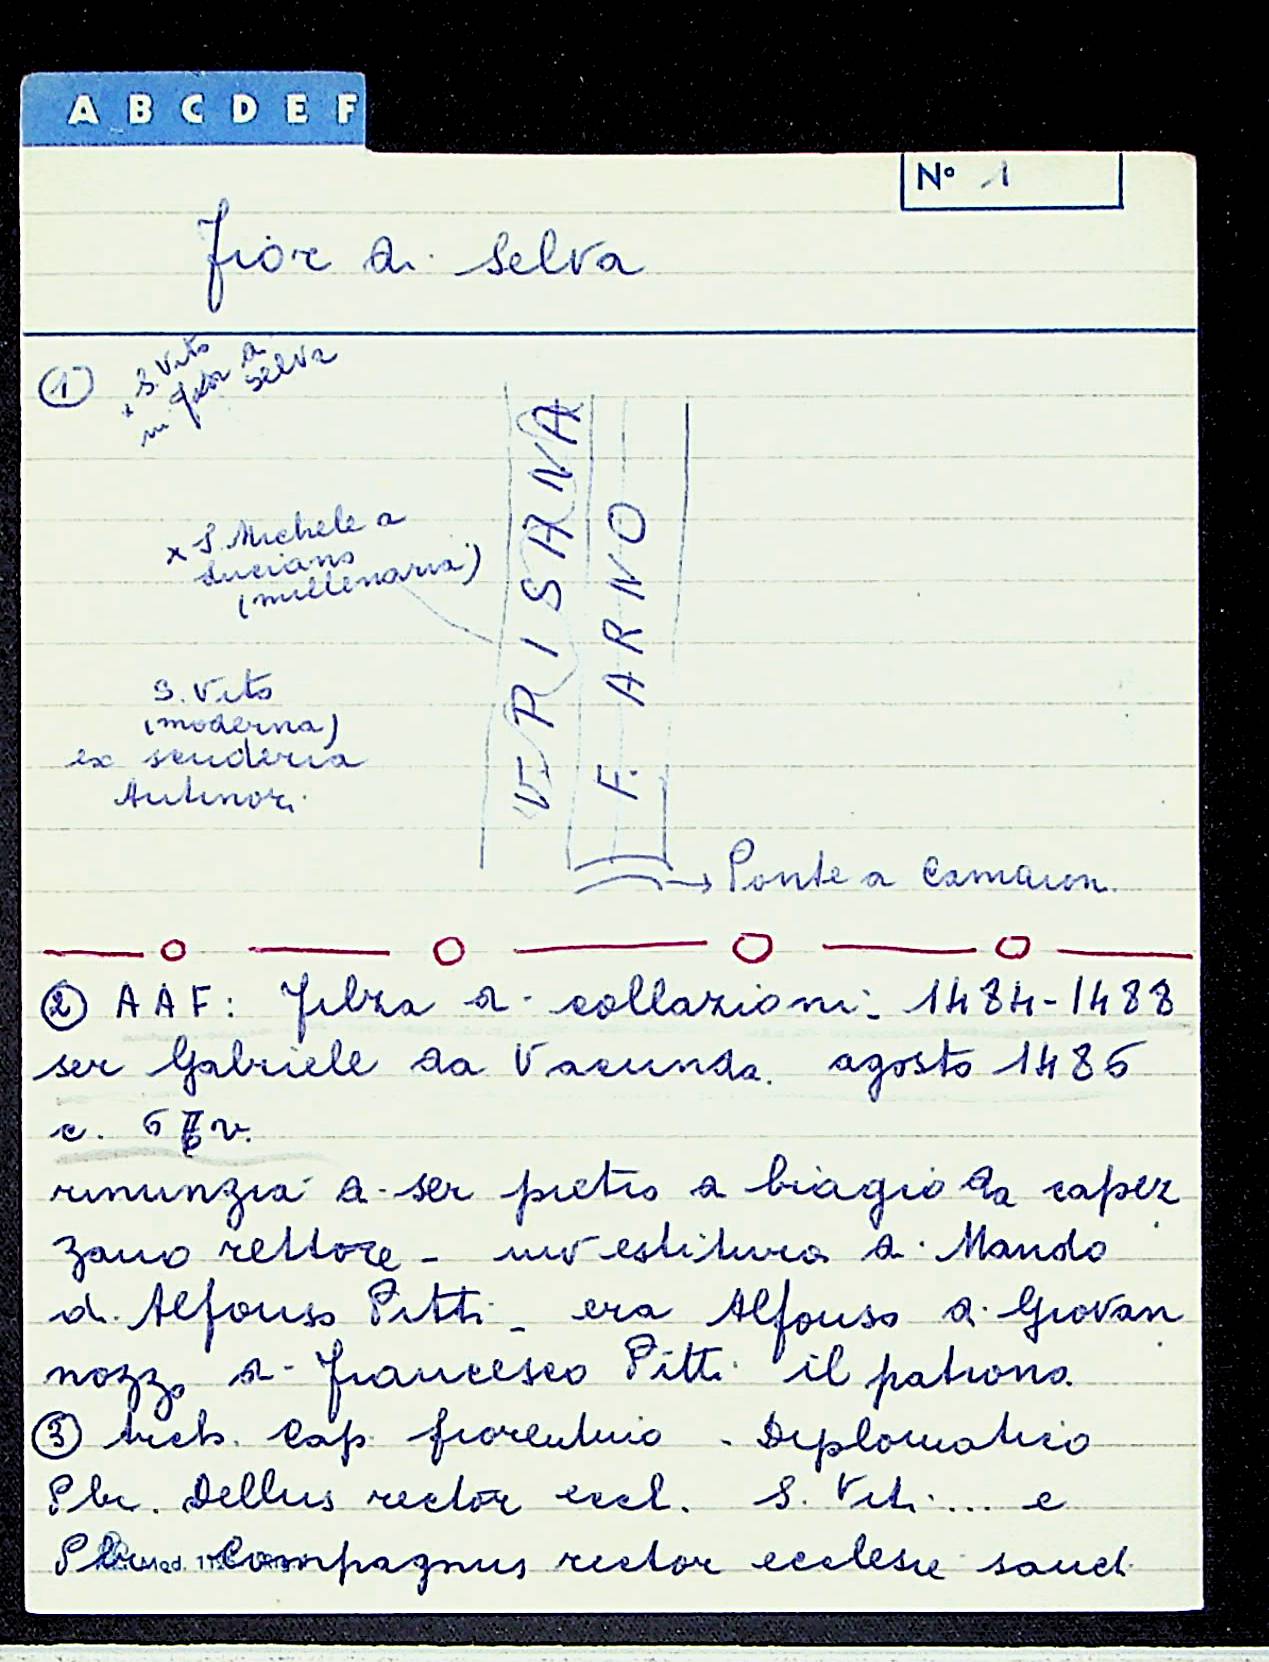 A B C D E F
N° 1
Fior di Selva
① x S. Vito
in fior di
selva
x S. Michele a
Luciano
(millenaria)
V. PISANA
F. ARNO
S. Vito
(moderna)
ex scuderia
Antinori
→ Ponte a Camaion.
② AAF: Filza di collazioni: 1484-1488
ser Gabriele da Vacunda. agosto 1486
c. 6 v.
rinunzia di ser pietro di biagio da capez
zano rettore - investitura di Mando
di Alfonso Pitti - era Alfonso di Giovan
nozzo di Francesco Pitti il patrono.
③ Arch. Cap. fiorentino - Diplomatico
Pbr. Dellus rector eccl. S. Viti ... e
Pbr Compagnus rector ecclesie sancti